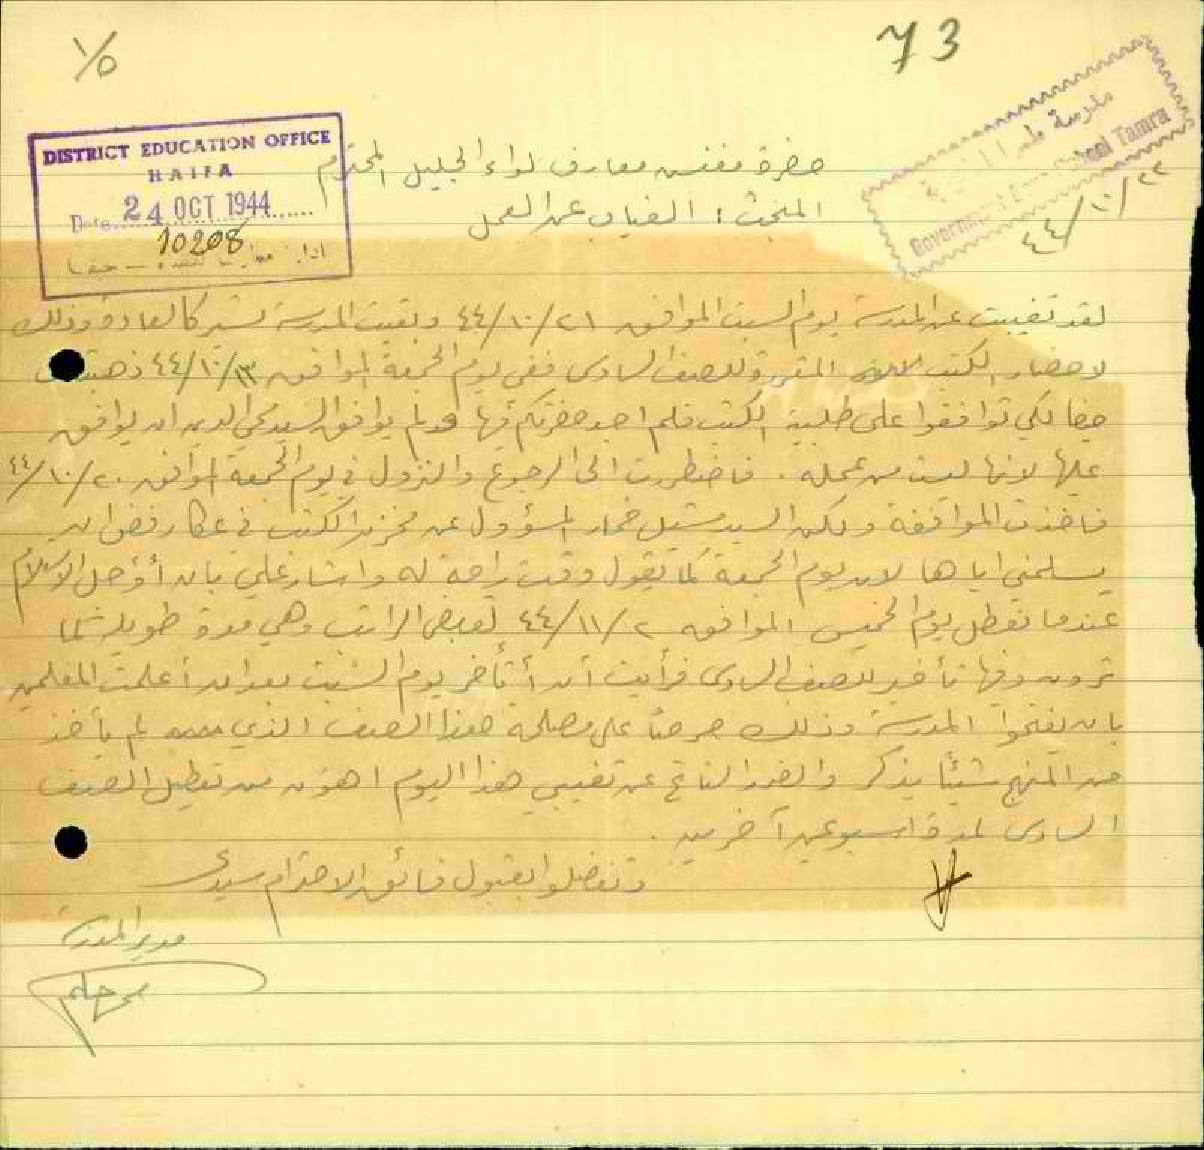 73
١/٥
مدرسة طمرا
Government School Tamra
٤٤/١٠/٢٢
DISTRICT EDUCATION OFFICE
HAIFA
Date 24 OCT 1944
10208
حضرة مفتش معارف لواء الجليل المحترم
المبحث : الغياب عن العمل
لقد تغيبت عن المدرسة يوم السبت الموافق ٤٤/١٠/٢١ وبقيت المدرسة تسير كالعادة وذلك
لاحضار الكتب المقررة للصف السادس ففي يوم الجمعة الموافق ٤٤/١٠/١٣ ذهبت
حيفا لكي توافقوا على طلبية الكتب فلم اجد حضرتكم فيها ولم يوافق السيد محي الدين ان يوافق
عليها لانها ليست من عمله . فاضطررت الى الرجوع والنزول في يوم الجمعة الموافق ٤٤/١٠/٢٠
فاخذت الموافقة ولكن السيد ميشيل خمار المسؤول عن مخزن الكتب في عكا رفض ان
يسلمني اياها لان يوم الجمعة كما يقول وقت راحة له واشار علي بان أؤجل الاستلام
عندما نعطل يوم الخميس الموافق ٤٤/١١/٢ لقبض الراتب وهي مدة طويلة كما
ترون وفيها تأخير للصف السادس فرأيت أن أتأخر يوم السبت بعد ان أعلمت المعلمين
بان يفتحوا المدرسة وذلك حرصاً على مصلحة هذا الصف الذي لم يأخذ
من المنهج شيئاً يذكر والضرر الناتج عن تغيبي هذا اليوم اهون من تعطيل الصف
السادس لمدة اسبوعين آخرين .
وتفضلوا بقبول فائق الاحترام سيدي
مدير المدرسة